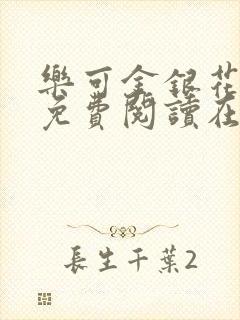 樂可金銀花
免費閱讀在
長生千葉2